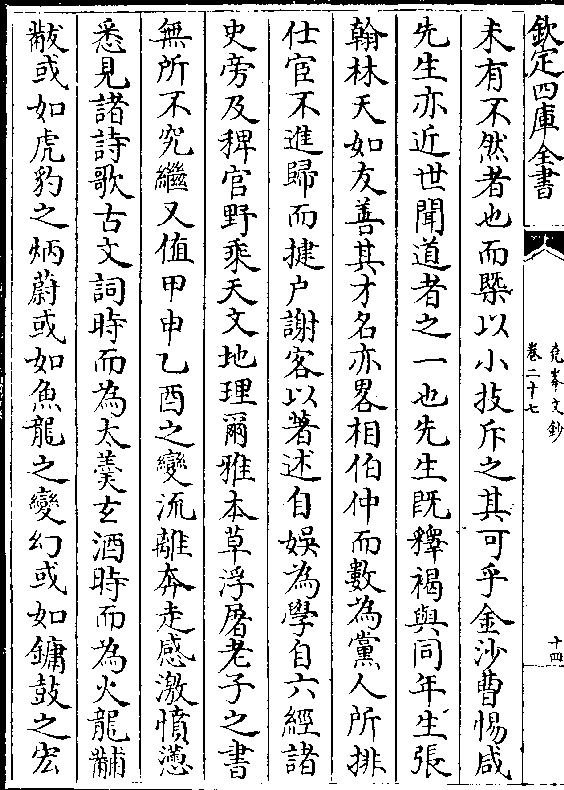 欽定四庫全書
堯峯文鈔
卷二十七
十四
未有不然者也而槩以小技斥之其可乎金沙曹惕咸
先生亦近世聞道者之一也先生既釋褐與同年生張
翰林天如友善其才名亦畧相伯仲而數為黨人所排
仕宦不進歸而揵户謝客以著述自娱為學自六經諸
史旁及稗官野乘天文地理爾雅本草浮屠老子之書
無所不究繼又值甲申乙酉之變流離奔走感激憤懣
悉見諸詩歌古文詞時而為太羮玄酒時而為火龍黼
黻或如虎豹之炳蔚或如魚龍之變幻或如鏞鼓之宏